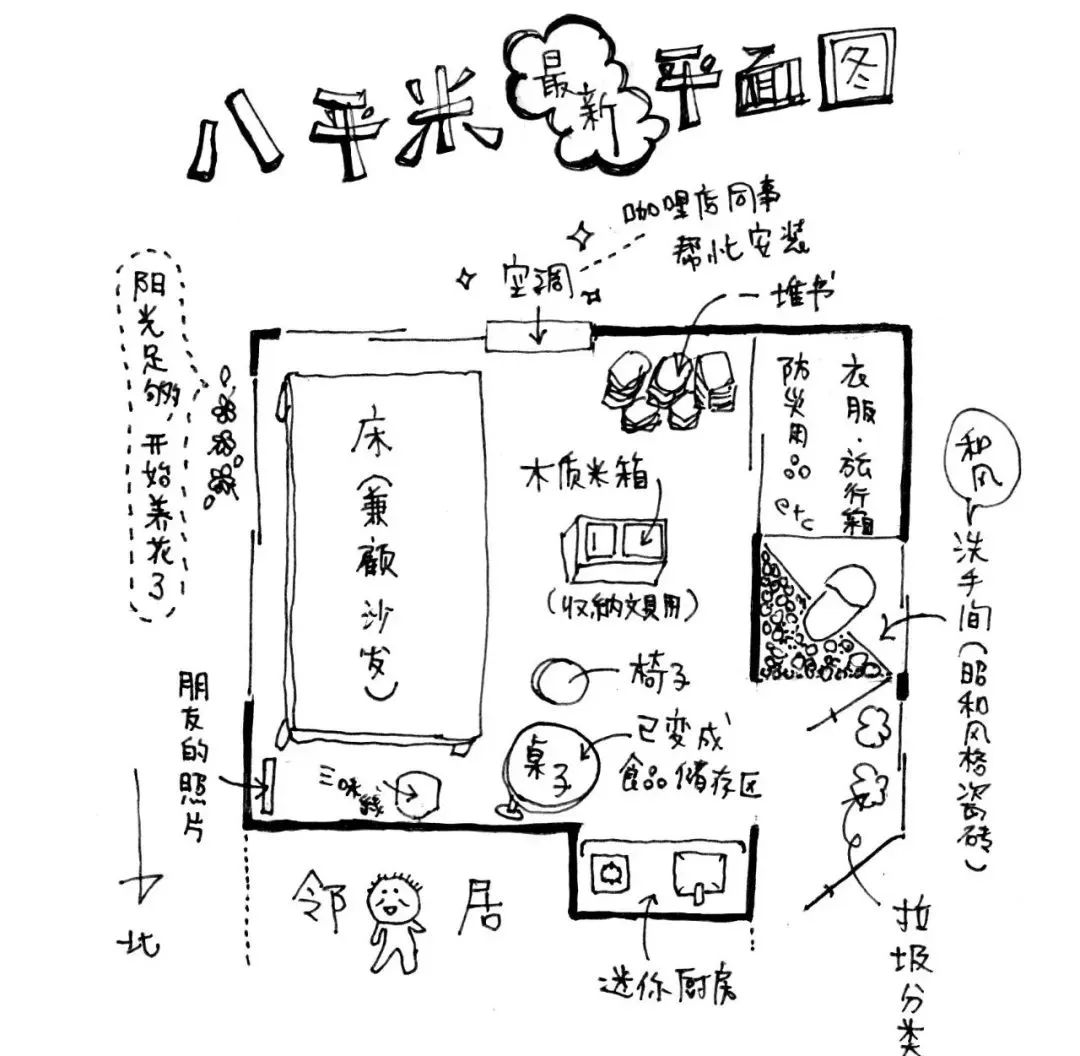 八平米最新平面图
咖喱店同事
帮忙安装
空调
一堆书
阳光足够，开始养花了
床（兼顾沙发）
木质米箱
（收纳文具用）
衣服·旅行箱
防灾用品
etc
和风
洗手间（昭和风格瓷砖）
椅子
桌子
已变成
食品储存区
朋友的照片
三味线
北
邻居
迷你厨房
垃圾分类